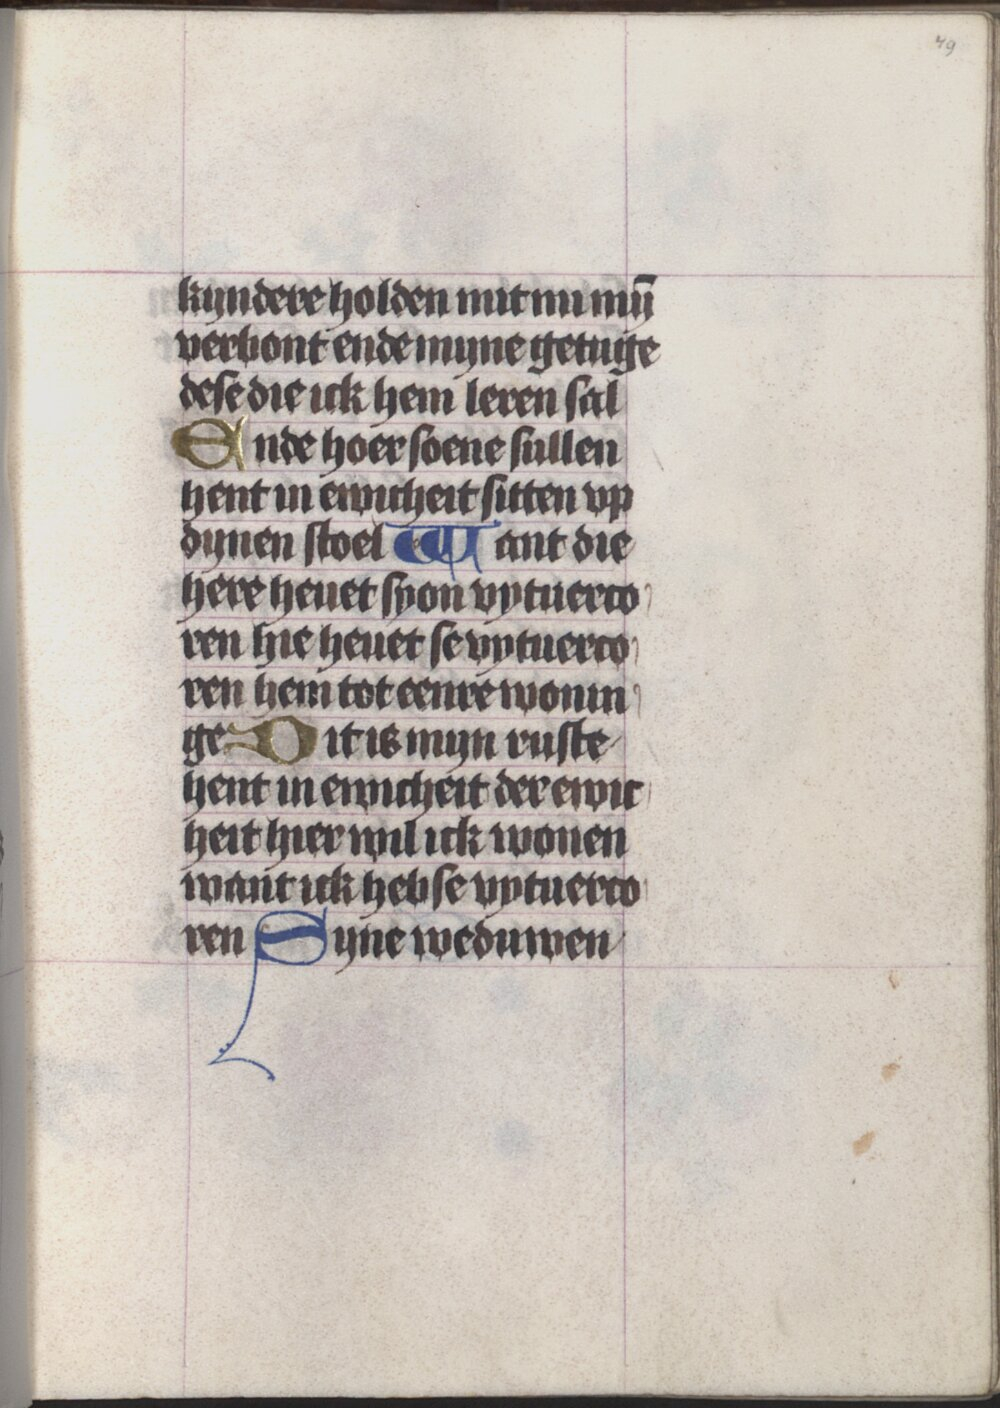 79
kyndere holden mit mi mȳ
verbont ende myne getuge
dese die ick hem leren sal
Ende hoer soene sullen
hent in ewicheit sitten vp
dynen stoel Want die
here heuet syon vytuerco
ren hie heuet se vytuerco
ren hem tot eenre wonin
ge Dit is mijn ruste
hent in ewicheit der ewic
heit hier wil ick wonen
want ick heb se vytuerco
ren Syne weduwen